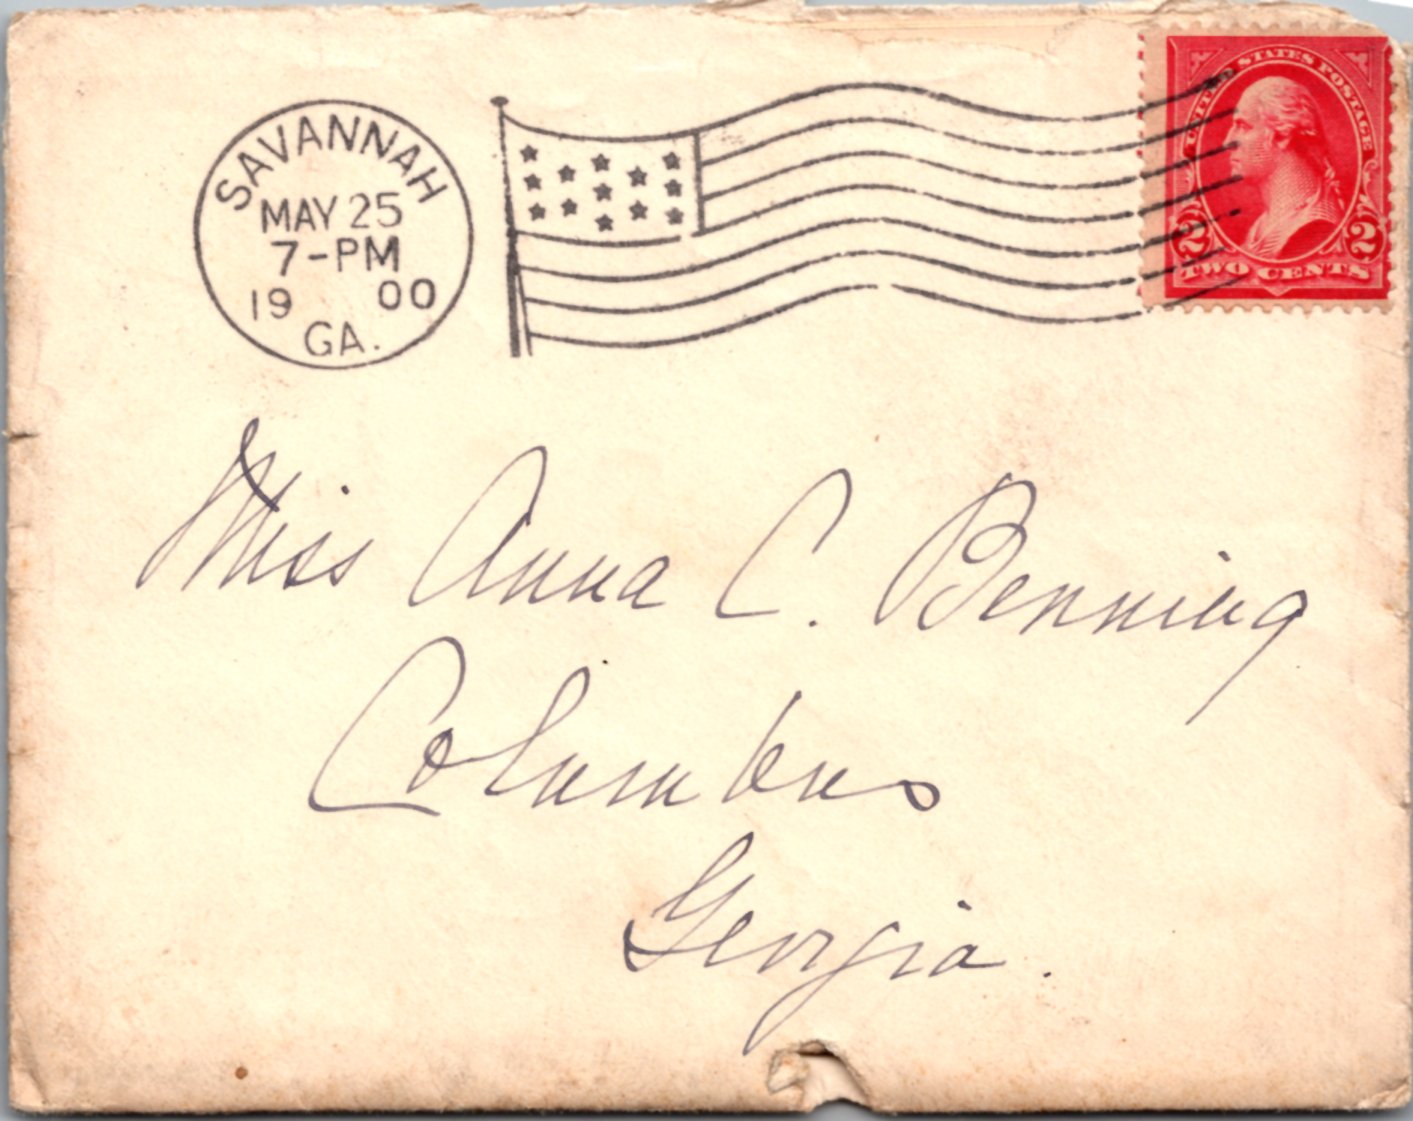 SAVANNAH
MAY 25
7-PM
19 00
GA.
UNITED STATES POSTAGE
2 2
TWO CENTS
Miss Anna C. Benning
Columbus
Georgia.